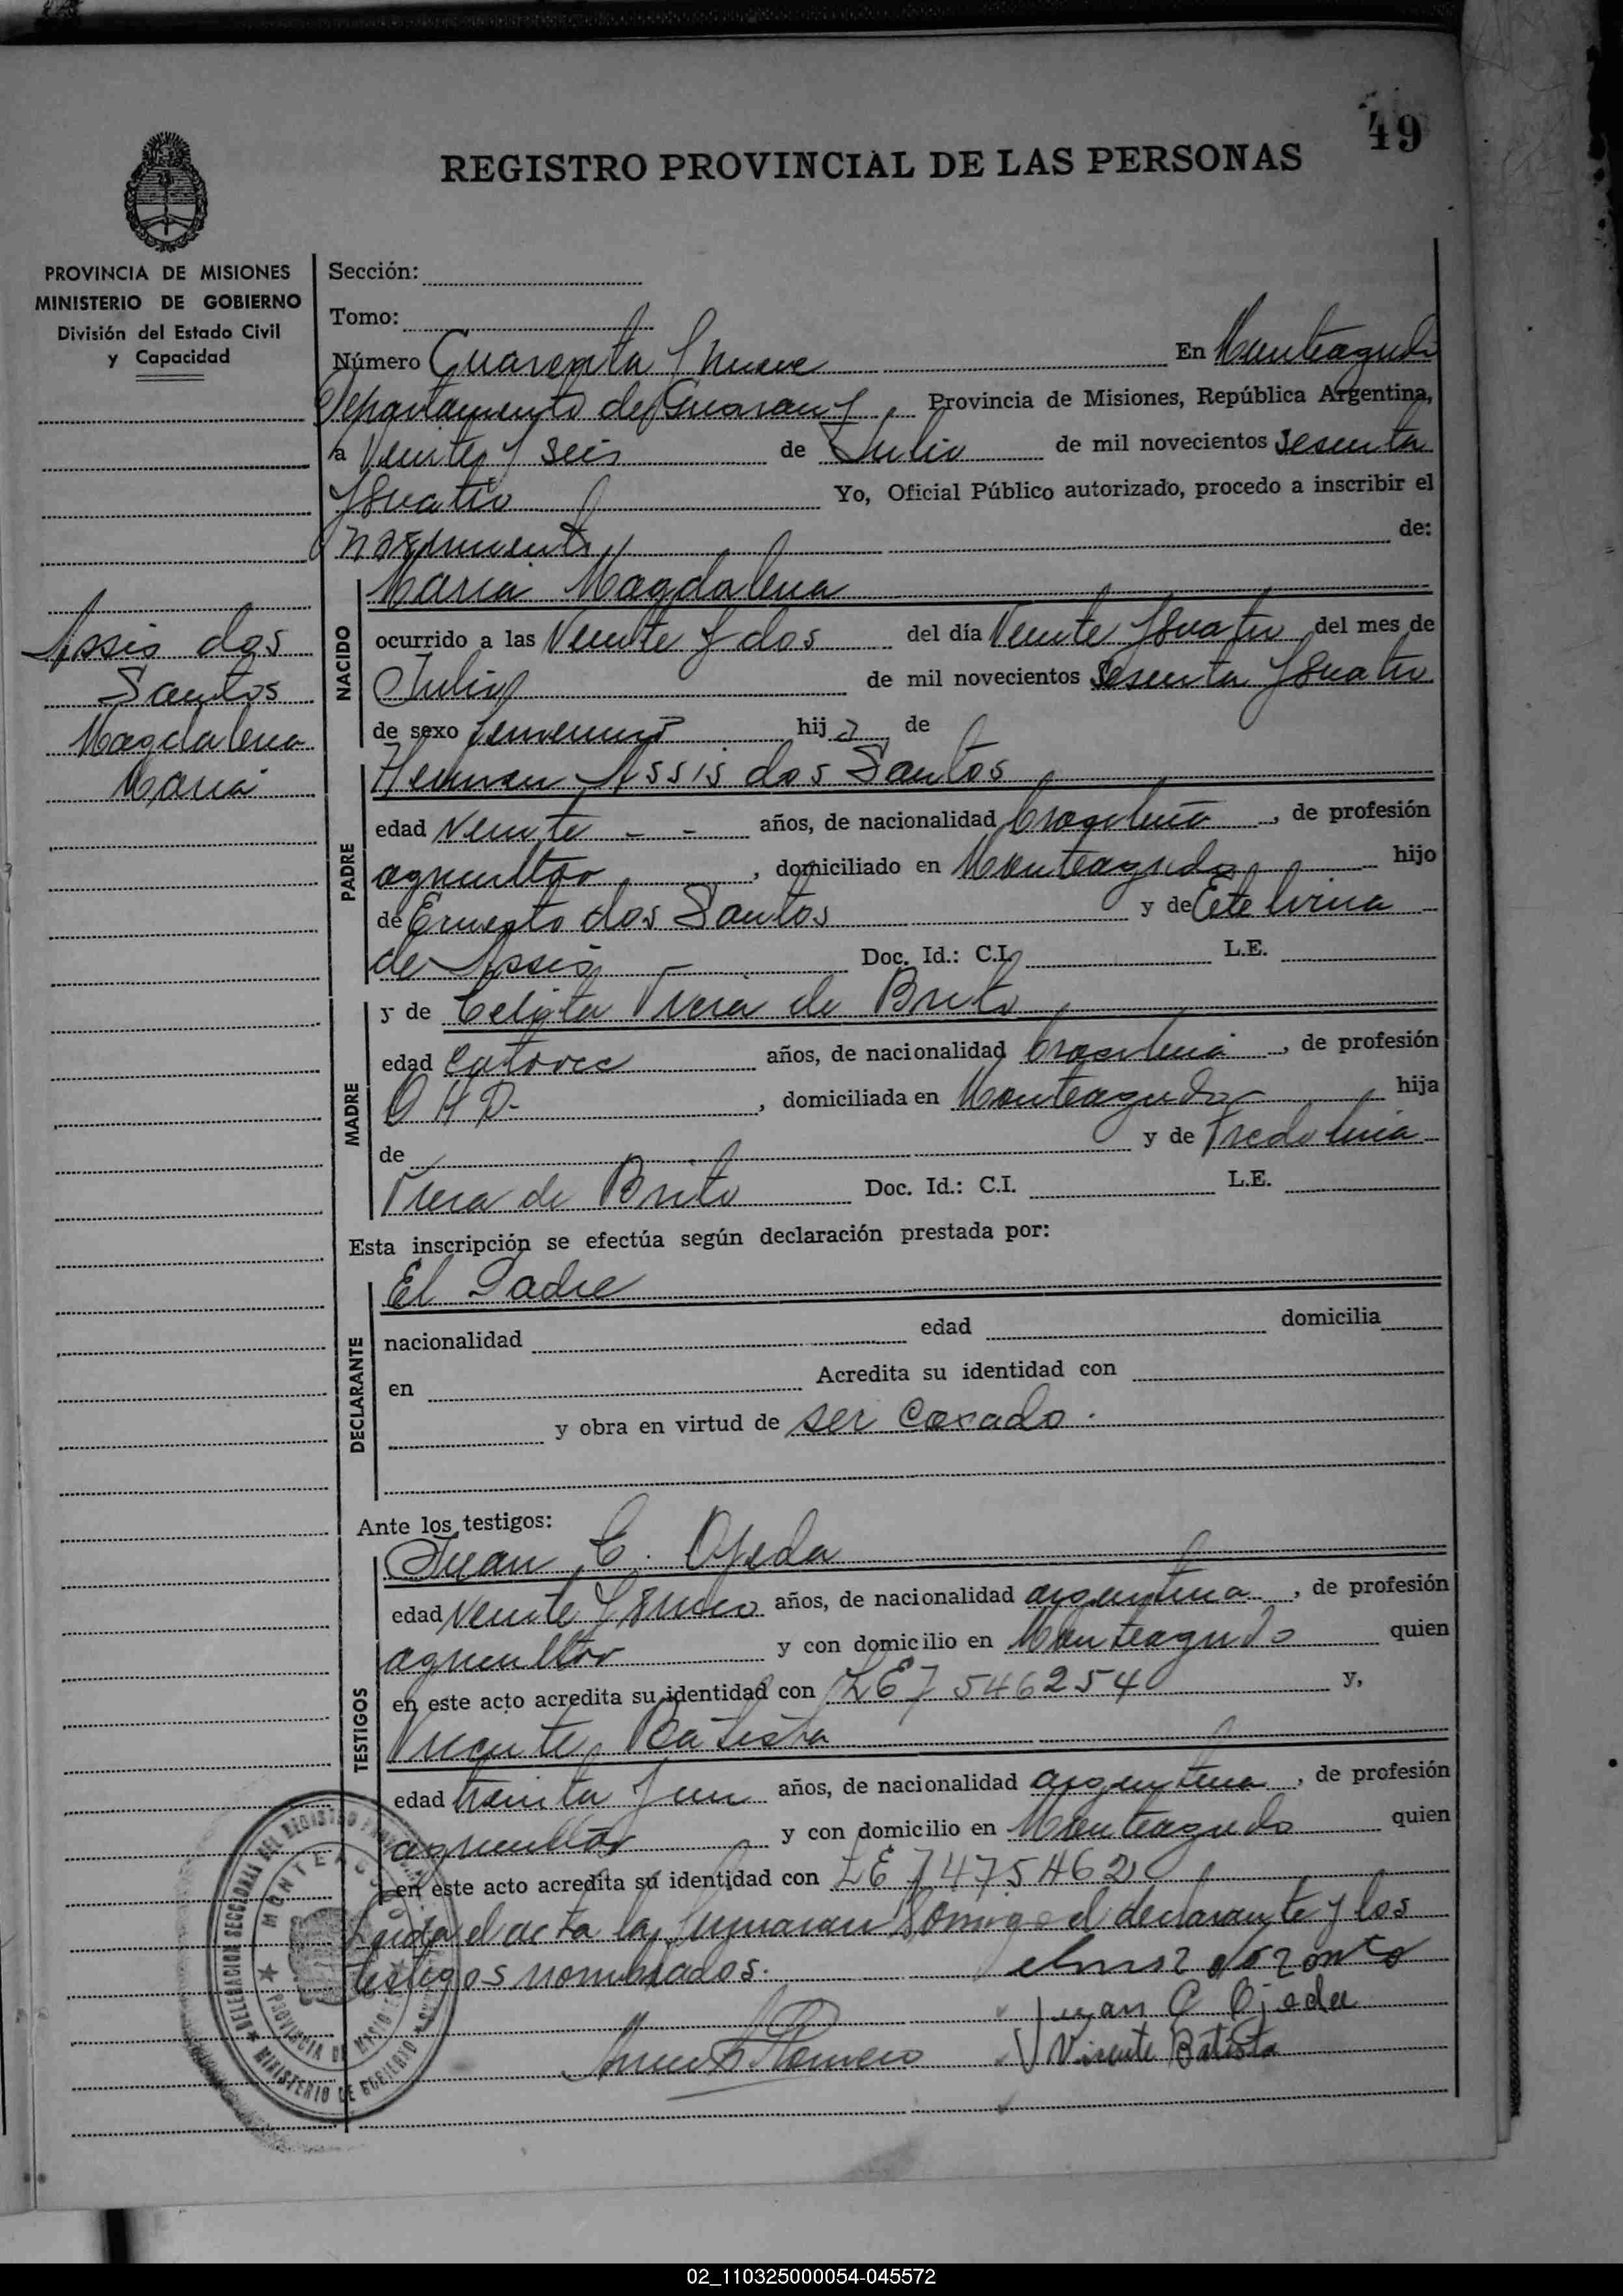 49
REGISTRO PROVINCIAL DE LAS PERSONAS
PROVINCIA DE MISIONES
MINISTERIO DE GOBIERNO
División del Estado Civil
y Capacidad
Assis dos
Santos
Magdalena
Maria
Sección:
Tomo:
Número Cuarenta y nueve En Monteagudo
Departamento de Guarany, Provincia de Misiones, República Argentina,
a Veinte y seis de Julio de mil novecientos sesenta
y cuatro Yo, Oficial Público autorizado, procedo a inscribir el
nacimiento de:
NACIDO
Maria Magdalena
ocurrido a las Veinte y dos del día Veinte y cuatro del mes de
Julio de mil novecientos Sesenta y cuatro
de sexo femenino hija de
PADRE
Assis dos Santos
edad Veinte - - años, de nacionalidad brasileña, de profesión
agricultor, domiciliado en Monteagudo hijo
de Ernesto dos Santos y de Etelvina
de Assis Doc. Id.: C.I. L.E.
MADRE
y de Viera de Brito
edad catorce años, de nacionalidad brasilena, de profesión
Q H D-, domiciliada en Monteagudo hija
de y de
Viera de Brito Doc. Id.: C.I. L.E.
Esta inscripción se efectúa según declaración prestada por:
DECLARANTE
El Padre
nacionalidad edad domicilia
en Acredita su identidad con
y obra en virtud de ser Casado.
Ante los testigos:
TESTIGOS
Juan C. Ojeda
edad Veinte y cinco años, de nacionalidad argentina, de profesión
agricultor y con domicilio en Monteagudo quien
en este acto acredita su identidad con LE 7546254 y,
Vicente Batista
edad treinta y un años, de nacionalidad argentina, de profesión
agricultor y con domicilio en Monteagudo quien
en este acto acredita su identidad con LE 7475462
Leida el acta la firmaran conmigo el declarante y los
testigos nombrados.
Juan C Ojeda
Romero Vicente Batista
DELEGACION SECCIONAL DEL REGISTRO
MONTEAGUDO
PROVINCIA DE MISIONES
MINISTERIO DE GOBIERNO
02_110325000054-045572